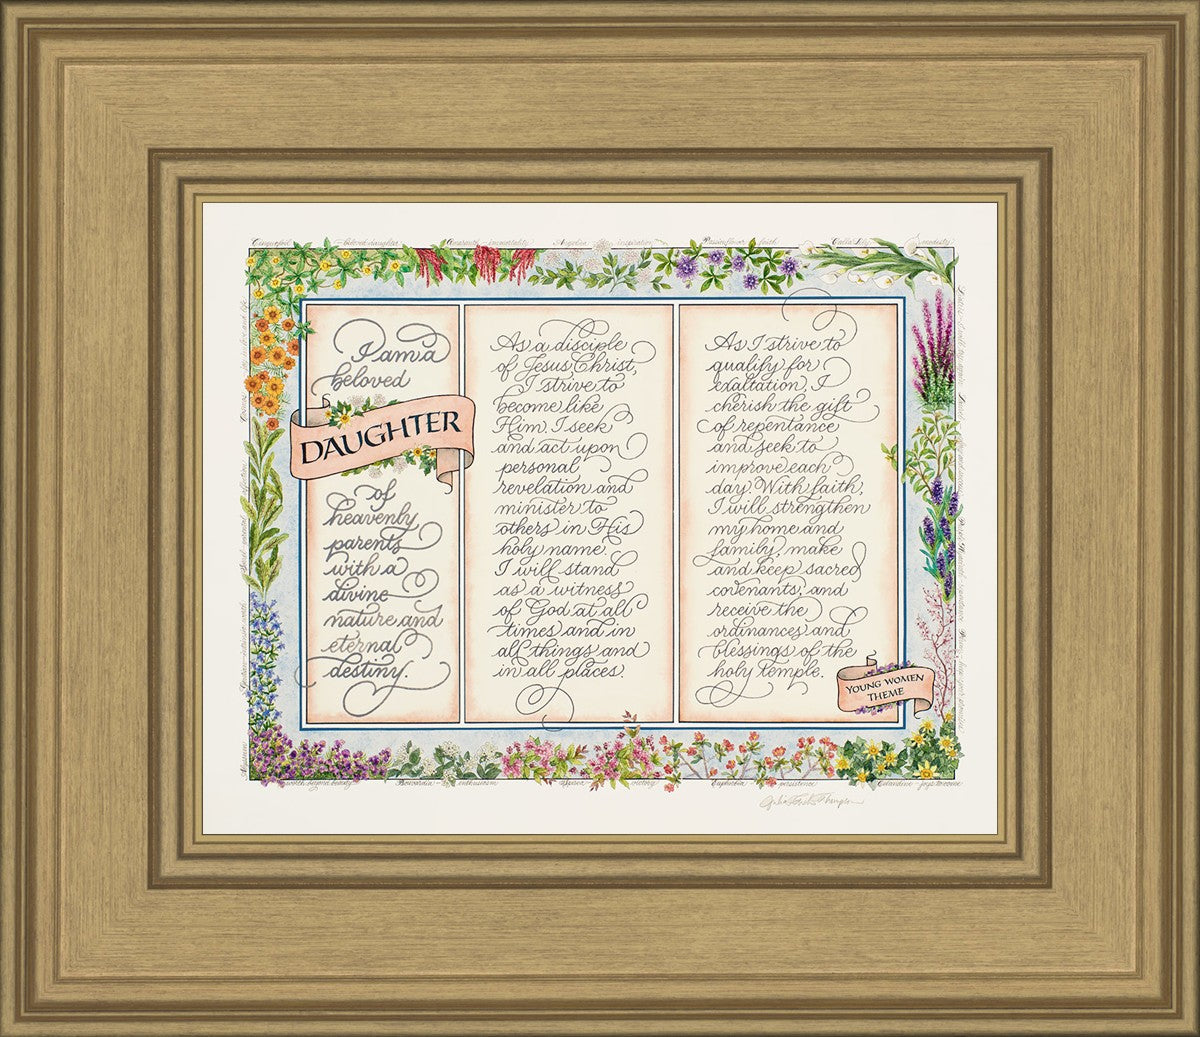 Cinquefoil – beloved daughter
Amaranth – immortality
Angelica – inspiration
Passionflower – faith
Calla Lily – modesty
I am a
beloved
DAUGHTER
of
heavenly
parents
with a
divine
nature and
eternal
destiny.
As a disciple
of Jesus Christ,
I strive to
become like
Him. I seek
and act upon
personal
revelation and
minister to
others in His
holy name.
I will stand
as a witness
of God at all
times and in
all things and
in all places.
As I strive to
qualify for
exaltation, I
cherish the gift
of repentance
and seek to
improve each
day. With faith,
I will strengthen
my home and
family, make
and keep sacred
covenants, and
receive the
ordinances and
blessings of the
holy temple.
YOUNG WOMEN
THEME
Bouvardia – enthusiasm
victory
Euphorbia – persistence
Celandine – joys to come